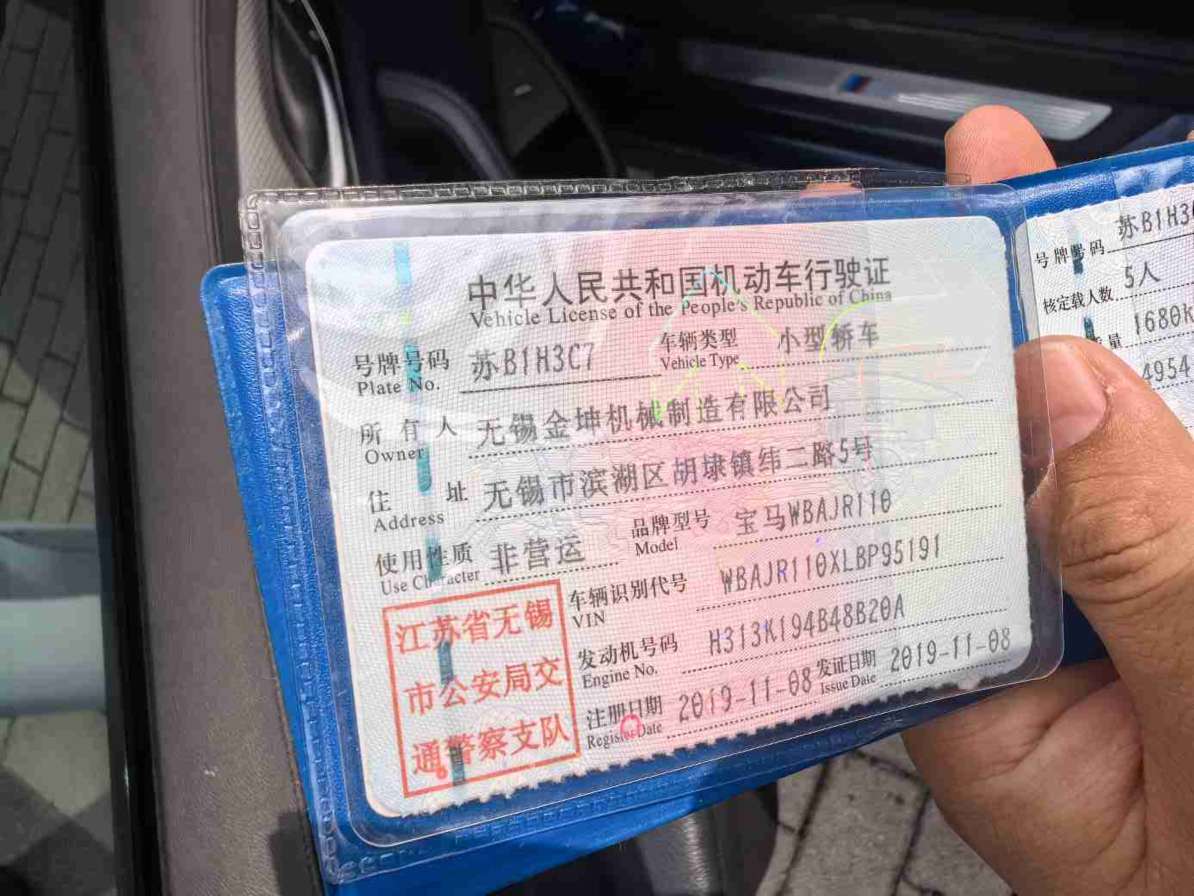 中华人民共和国机动车行驶证
Vehicle License of the People's Republic of China
号牌号码 苏B1H3C7 车辆类型 小型轿车
Plate No. Vehicle Type
所有人 无锡金坤机械制造有限公司
Owner
住址 无锡市滨湖区胡埭镇纬二路5号
Address
使用性质 非营运 品牌型号 宝马WBAJR110
Use Character Model
车辆识别代号 WBAJR110XLBP95191
VIN
发动机号码 H313K194B48B20A
Engine No.
注册日期 2019-11-08 发证日期 2019-11-08
Register Date Issue Date
江苏省无锡
市公安局交
通警察支队
号牌号码 苏B1H3
核定载人数 5人
量 1680k
4954